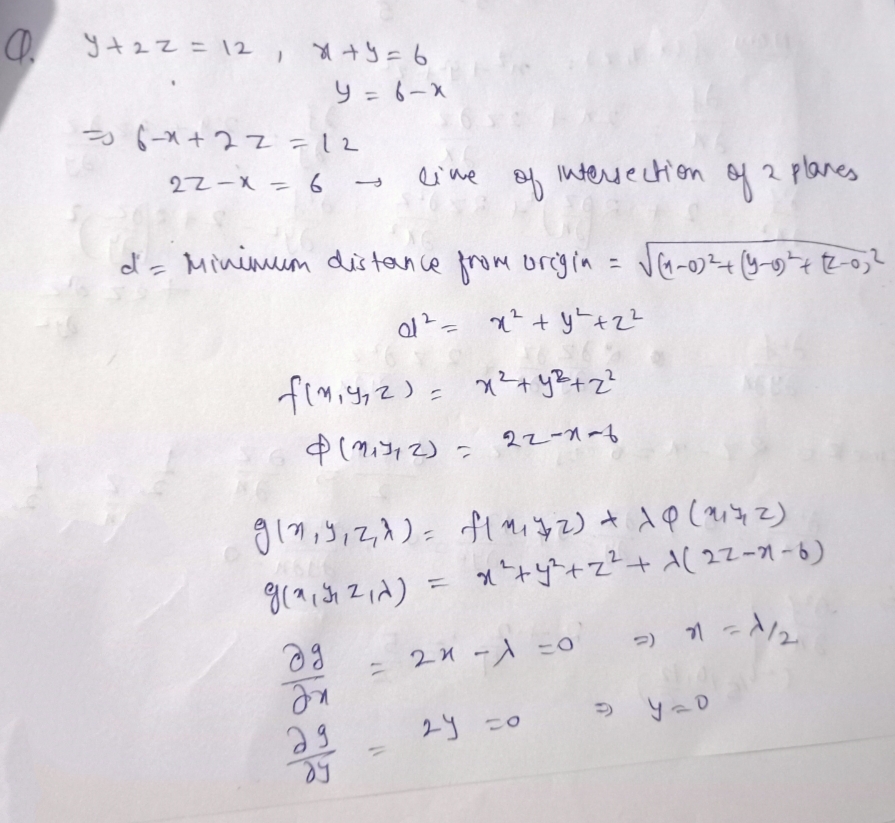 Q. y+2z = 12 , x+y = 6
y = 6-x
⇒ 6-x+2z = 12
2z-x = 6 → line of intersection of 2 planes
d = Minimum distance from origin = √(x-0)²+(y-0)²+(z-0)²
d² = x²+y²+z²
f(x,y,z) = x²+y²+z²
φ(x,y,z) = 2z-x-6
g(x,y,z,λ) = f(x,y,z) + λφ(x,y,z)
g(x,y,z,λ) = x²+y²+z²+λ(2z-x-6)
∂g/∂x = 2x-λ = 0 ⇒ x = λ/2
∂g/∂y = 2y = 0 ⇒ y = 0